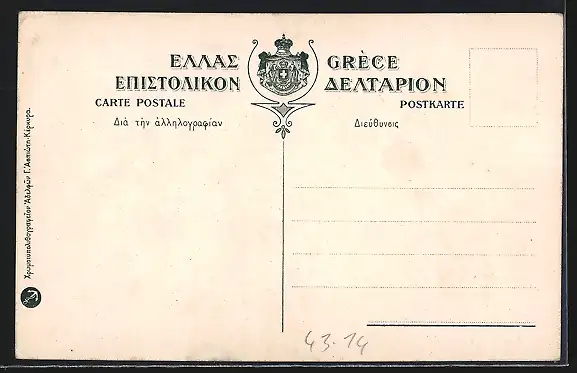 ΕΛΛΑΣ GRÈCE
ΕΠΙΣΤΟΛΙΚΟΝ ΔΕΛΤΑΡΙΟΝ
CARTE POSTALE POSTKARTE
Διὰ τὴν ἀλληλογραφίαν Διεύθυνσις
Χρωμολιθογραφεῖον Ἀδελφῶν Γ. Ἀσπιώτη-Κέρκυρα.
43.14